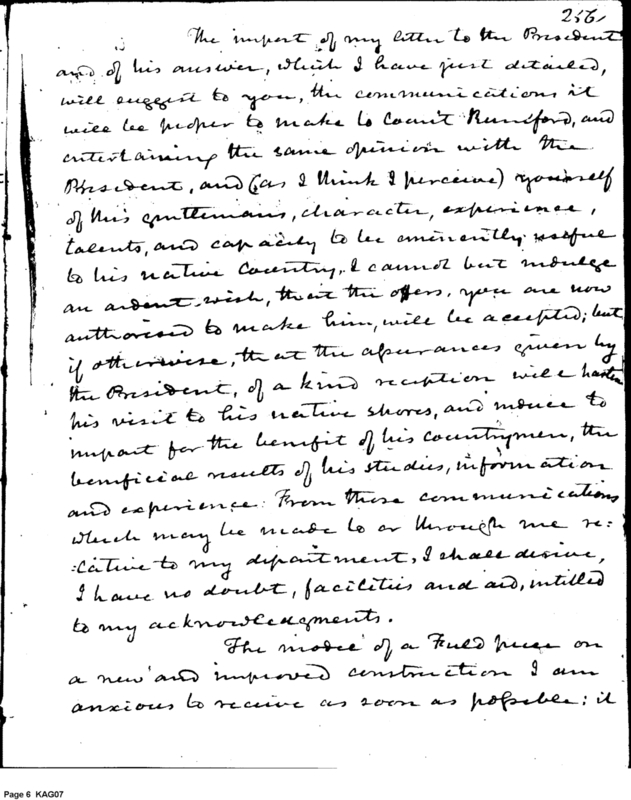 256/
The import of my letter to the President
and of his answer, which I have just detailed,
will suggest to you, the communications it
will be proper to make to Count Rumford, and
entertaining the same opinion with the
President, and (as I think I perceive) yourself
of this gentlemans, character, experience,
talents, and capacity to be eminently useful
to his native Country, I cannot but indulge
an ardent wish, that the offers, you are now
authorised to make him, will be accepted; but
if otherwise, that the assurances given by
the President, of a kind reception will hasten
his visit to his native shores, and induce to
impart for the benefit of his countrymen, the
beneficial results of his studies, information
and experience: From those communications
which may be made to or through me re:
:lative to my department, I shall derive,
I have no doubt, facilities and aid, intitled
to my acknowledgments.
The model of a Field piece on
a new and improved construction I am
anxious to receive as soon as possible; it
Page 6 KAG07